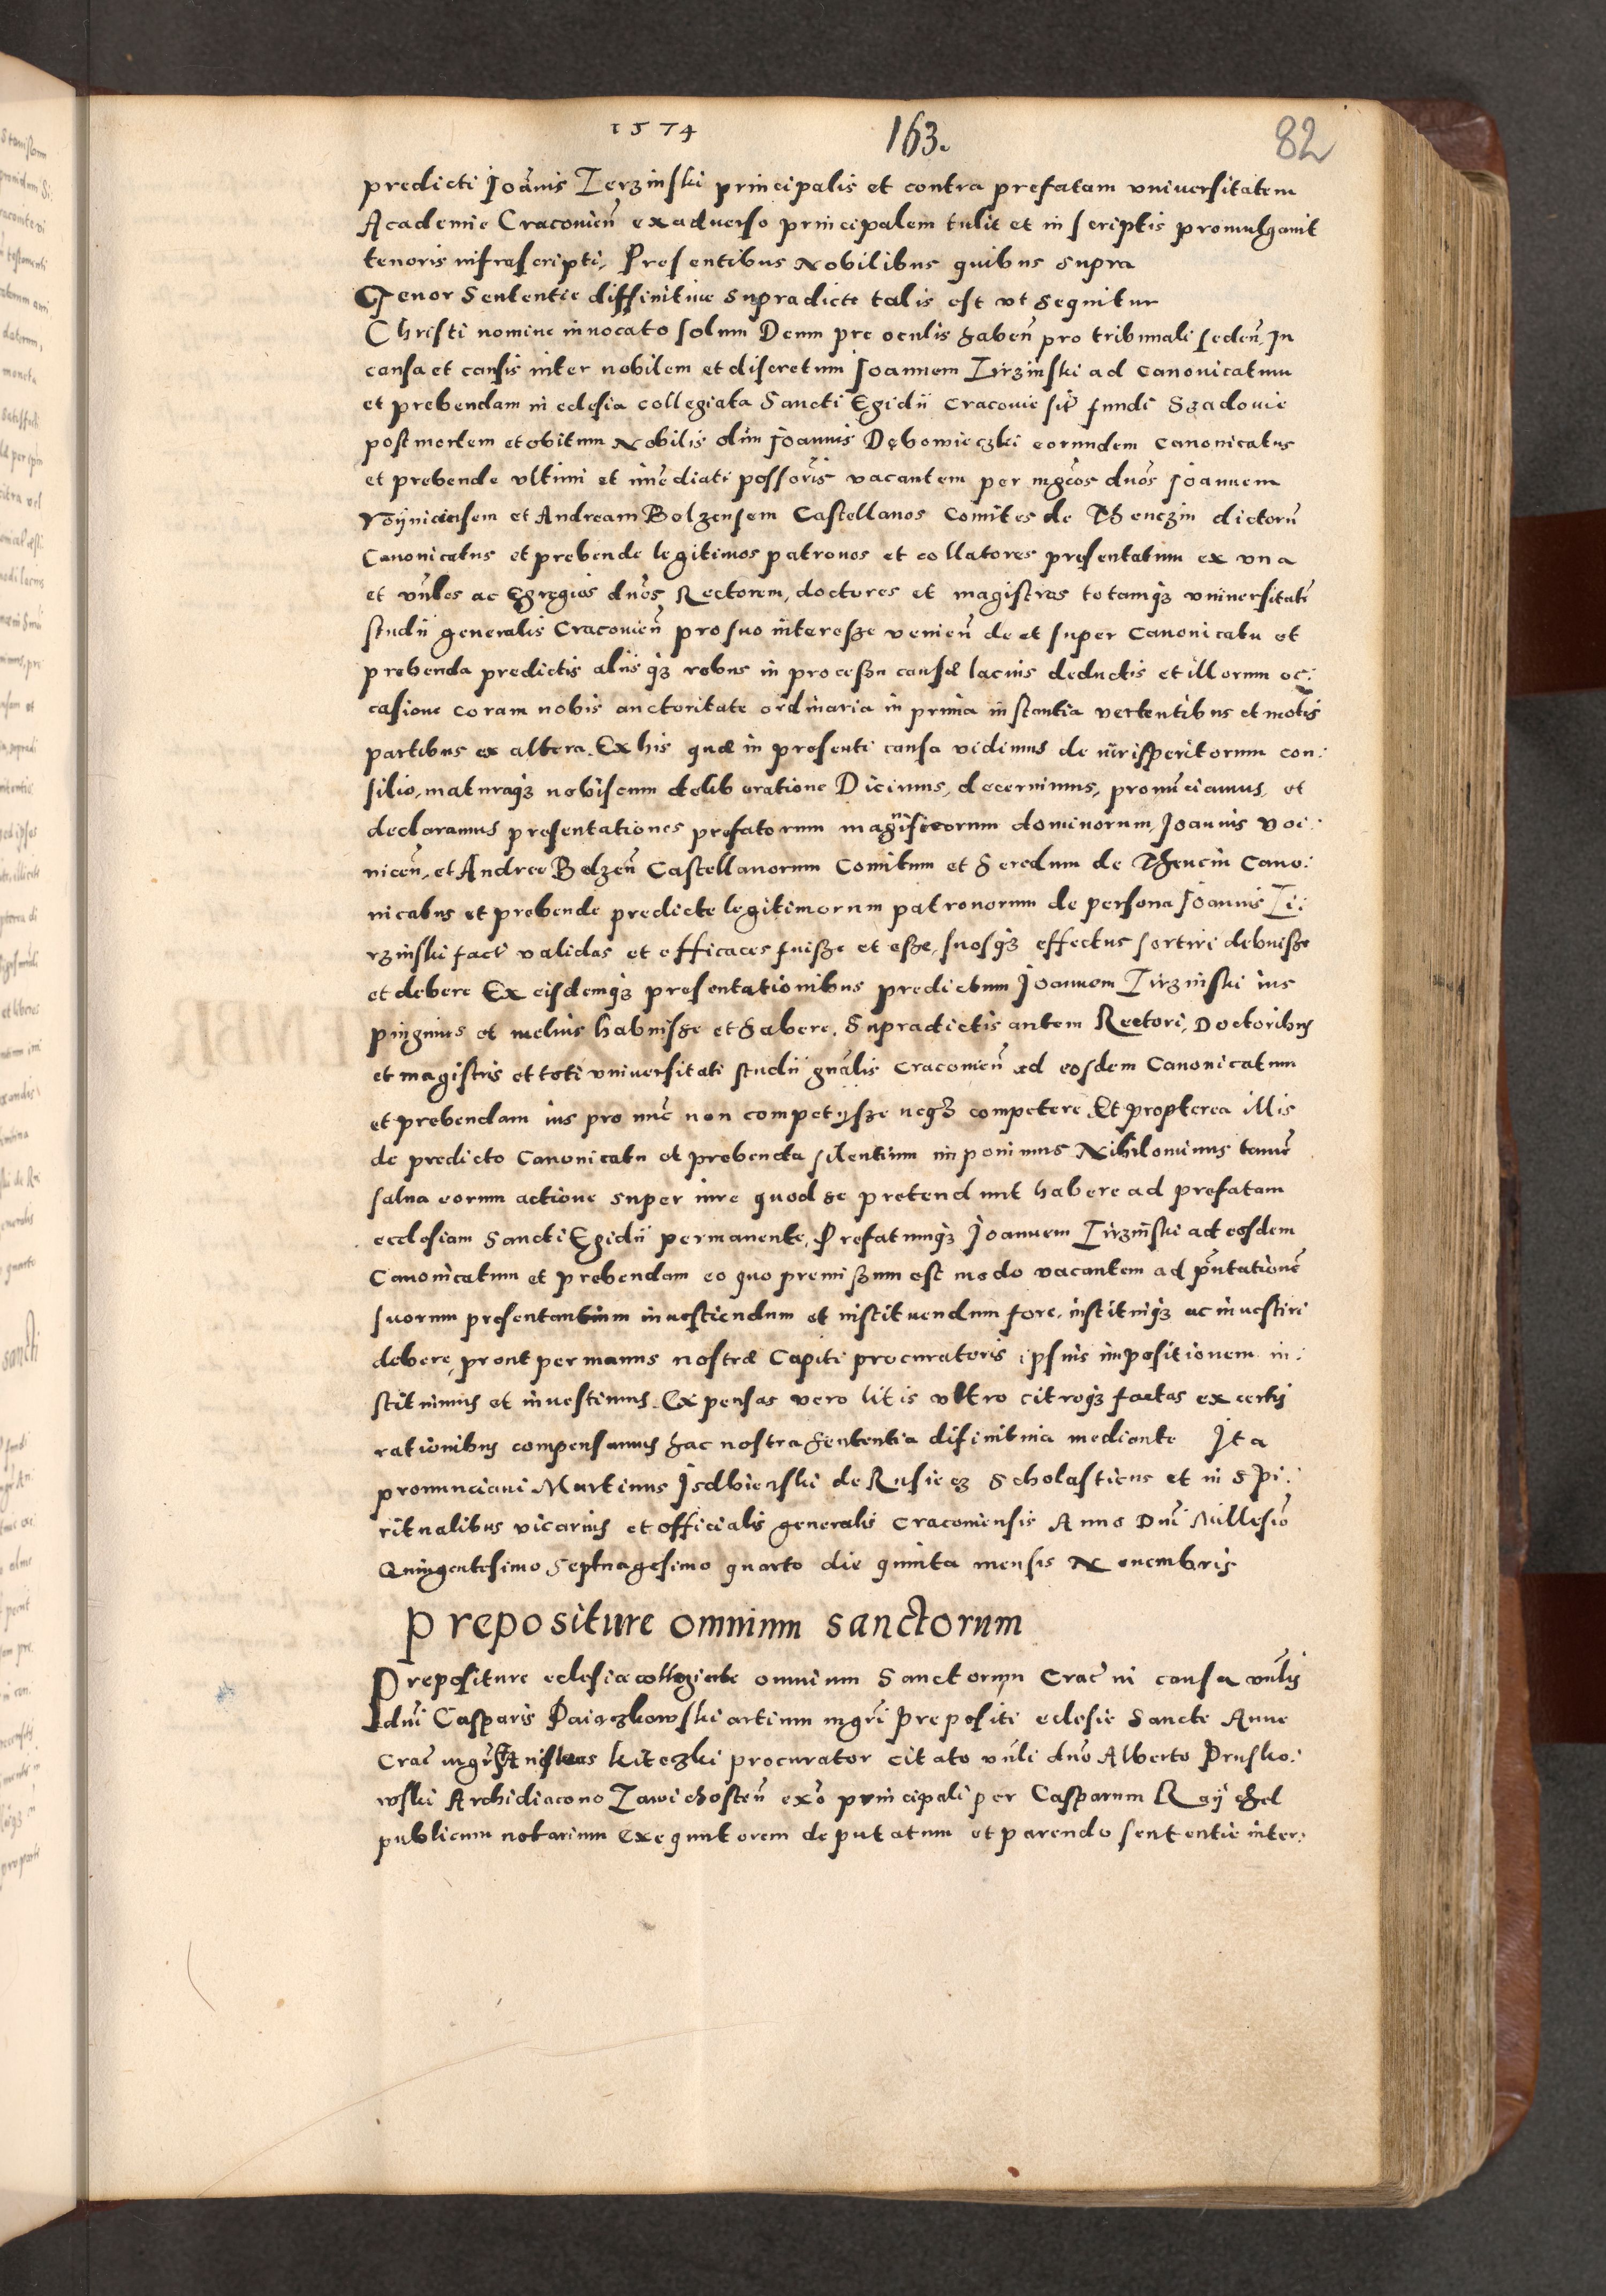 1574 163. 82
predicti Joānis Zerzinski principalis et contra prefatam vniuersitatem
Academie Cracouieñ ex aduerso principalem tulit et in scriptis promulgauit
tenoris infrascripti, Presentibus Nobilibus quibus supra
Tenor Sententie diffinitiue supradicte talis est vt sequitur
Christi nomine inuocato solum Deum pre oculis habeñ pro tribunali sedeñ, In
causa et causis inter nobilem et discretum Joannem Zirzinski ad Canonicatum
et prebendam in eclesia collegiata Sancti Egidii Cracouie sit fundi Szadouie
post mortem et obitum Nobilis olim Joannis Dębowieczki eorundem Canonicatus
et prebende vltimi et imediati possoris vacantem per mgcos dnos Joannem
Voynicensem et Andream Bolzensem Castellanos Comites de Thenczin dictoru
Canonicatus et prebende legitimos patronos et collatores presentatum ex vna
et vnbles ac Egregios dnos Rectorem, doctores et magistros totamqz vniuersitate
studii generalis Cracouieñ pro suo interesze venieñ de et super Canonicatu et
prebenda predictis aliisqz rebus in proceszu causæ lacius deductis et illorum oc:
casione coram nobis auctoritate ordinaria in prima instantia vertentibus et motis
partibus ex altera. Ex his quæ in presenti causa vidimus de iurisperitorum con:
silio, maturaqz nobiscum deliberatione Dicimus, decernimus, pronuciamus, et
declaramus presentationes prefatorum magnificorum dominorum, Joannis Voi:
niceñ, et Andree Belzeñ Castellanorum Comitum et heredum de Thencin Cano:
nicatus et prebende predicte legitimorum patronorum de persona Joannis Zi:
rzinski fact validas et efficaces fuisze et esze, suosqz effectus sortiri debuisze
et debere Ex eisdemqz presentationibus predictum Joannem Zirzinski ius
pinguius et melius habuisze et habere. Supradictis autem Rectori, Doctoribus
et magistris et toti vniuersitati studii gnalis Cracouieñ ad eosdem Canonicatum
et prebendam ius pro nuc non competysze neqz competere. Et propterea illis
de predicto Canonicatu et prebenda silentium imponimus Nihilominus tame
salua eorum actione super iure quod se pretendunt habere ad prefatam
ecclesiam Sancti Egidii permanente, Prefatumqz Joannem Zirzinski ad eosdem
Canonicatum et prebendam eo quo premiszum est modo vacantem ad pntatione
suorum presentantium inuestiendum et instituendum fore, instituiqz ac inuestiri
debere, prout per manus nostræ Capiti procuratoris ipsius impositionem in:
stituimus et inuestimus. Expensas vero litis vltro citroqz factas ex certis
rationibus compensamus hac nostra sententia difinitiua mediante Ita
pronunciaui Martinus Isdbienski de Rusiecz Scholasticus et in Spi:
ritualibus vicarius et officialis generalis Cracouiensis Anno Dni Millesio
Quingentesimo Septuagesimo quarto die quinta mensis Nouembris
Prepositure omnium sanctorum
Prepositure eclesiæ collegiate omnium Sanctorum Crac in causa vnlis
dni Casparis Paiączkowski artium mgri Prepositi eclesie Sancte Anne
Crac mgr Kiteczki procurator citato vnli dno Alberto Prusko:
wski Archidiacono Zawichosteñ exo principali per Casparum Raychel
publicum notarium exequutorem deputatum et parendo sententie inter: